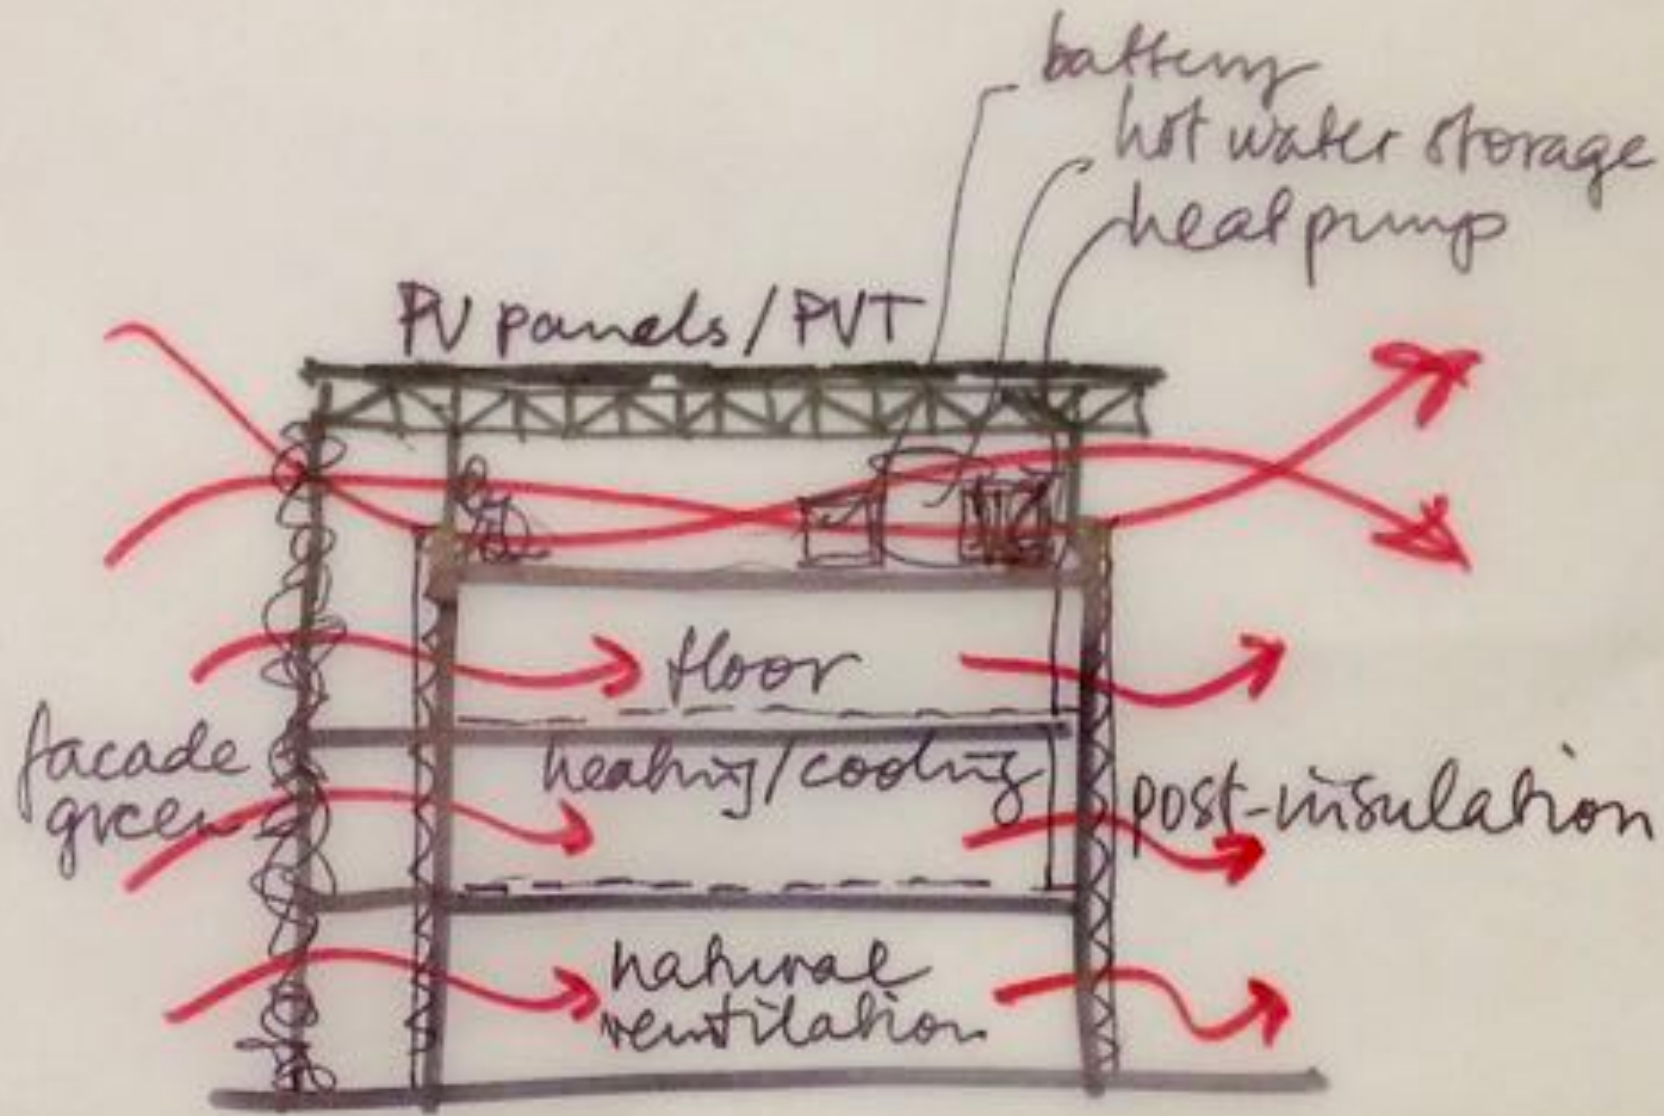 battery
hot water storage
heat pump
PV panels / PVT
floor
heating/cooling
facade
green
post-insulation
natural
ventilation